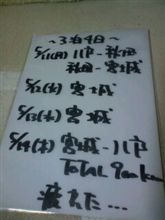 〜3泊4日〜
5/11(月) 八戸-秋田
秋田-宮城
5/12(火) 宮城
5/13(水) 宮城
5/14(木) 宮城-八戸
TOTAL 900km
疲れた…